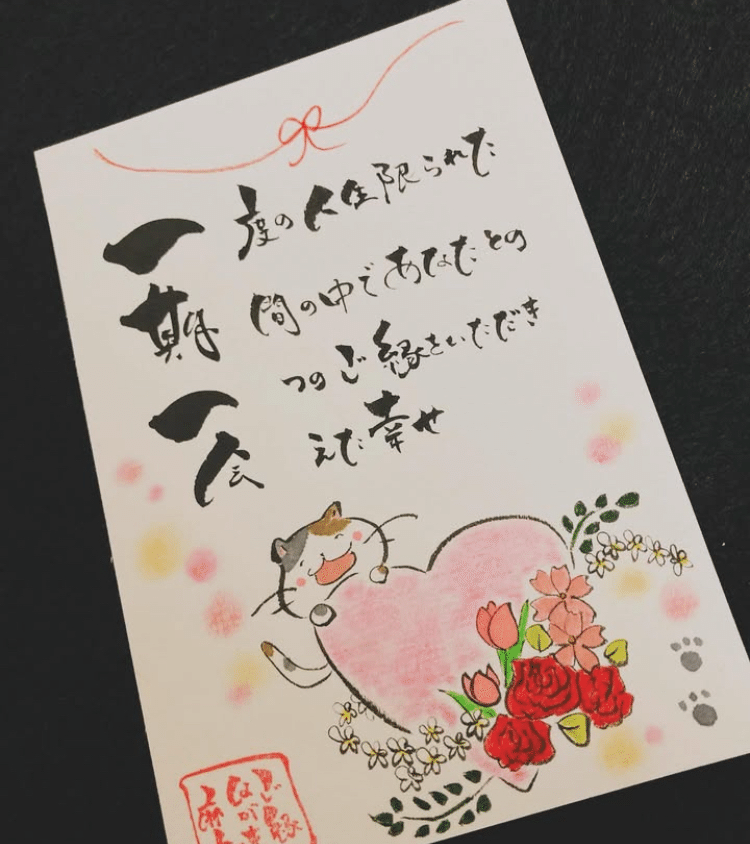 一度の人生限られた
期間の中であなたとの
一つのご縁をいただき
会えた幸せ
ご縁